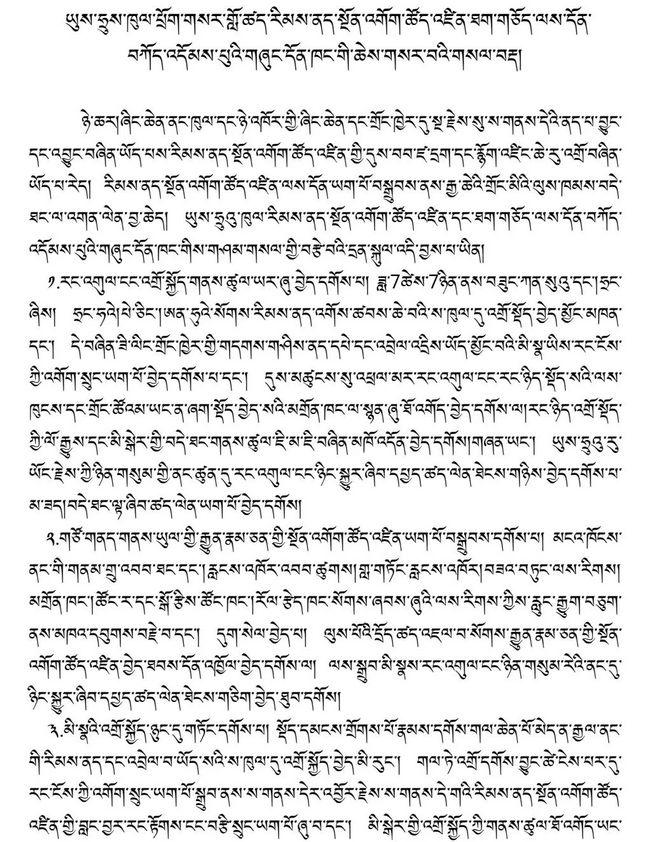 ཡུས་ཧྲུས་ཁུལ་ཕྲོག་གསར་གློ་ཚད་རིམས་ནད་སྔོན་འགོག་ཚོད་འཛིན་ཐག་གཅོད་ལས་དོན་
བཀོད་འདོམས་པུའི་གཞུང་དོན་ཁང་གི་ཆེས་གསར་བའི་གསལ་བརྡ།
ཉེ་ཆར།ཞིང་ཆེན་ནང་ཁུལ་དང་ཉེ་འཁོར་གྱི་ཞིང་ཆེན་དང་གྲོང་ཁྱེར་དུ་སྔ་རྗེས་སུ་ས་གནས་དེའི་ནད་པ་བྱུང་
དང་འབྱུང་བཞིན་ཡོད་པས་རིམས་ནད་སྔོན་འགོག་ཚོད་འཛིན་གྱི་དུས་བབ་ཛ་དྲག་དང་རྙོག་འཛིང་ཆེ་རུ་འགྲོ་བཞིན་
ཡོད་པ་རེད། རིམས་ནད་སྔོན་འགོག་ཚོད་འཛིན་ལས་དོན་ཡག་པོ་བསྒྲུབས་ནས་རྒྱ་ཆེའི་གྲོང་མིའི་ལུས་ཁམས་བདེ་
ཐང་ལ་འགན་ལེན་བྱ་ཆེད། ཡུས་ཧྲུའུ་ཁུལ་རིམས་ནད་སྔོན་འགོག་ཚོད་འཛིན་དང་ཐག་གཅོད་ལས་དོན་བཀོད་
འདོམས་པུའི་གཞུང་དོན་ཁང་གིས་གཤམ་གསལ་གྱི་བརྩེ་བའི་དྲན་སྐུལ་འདི་བྱས་པ་ཡིན།
༡.རང་འགུལ་ངང་འགྲོ་སྐྱོད་གནས་ཚུལ་ཡར་ཞུ་བྱེད་དགོས་པ། ཟླ་7ཚེས་7ཉིན་ནས་བཟུང་ཀན་སུའུ་དང་།ཧྲང་
ཞིས། ཧྲང་ཧའེ།པེ་ཅིང་།ཨན་ཧུའེ་སོགས་རིམས་ནད་འགོས་ཚབས་ཆེ་བའི་ས་ཁུལ་དུ་འགྲོ་སྡོད་བྱེད་མྱོང་མཁན་
དང་། དེ་བཞིན་ཟི་ལིང་གྲོང་ཁྱེར་གྱི་གདགས་གཤིས་ནད་དཔེ་དང་འབྲེལ་འདྲིས་ཡོད་མྱོང་བའི་མི་སྣ་ཡིས་རང་ངོས་
ཀྱི་འགོག་སྲུང་ཡག་པོ་བྱེད་དགོས་པ་དང་། དུས་མཚུངས་སུ་འཕྲལ་མར་རང་འགུལ་ངང་རང་ཉིད་སྡོད་སའི་ལས་
ཁུངས་དང་གྲོང་ཚོའམ་ཡང་ན་ཞག་སྡོད་བྱེད་སའི་མགྲོན་ཁང་ལ་སྙན་ཞུ་ཐོ་འགོད་བྱེད་དགོས་ལ།རང་ཉིད་འགྲོ་སྡོད་
ཀྱི་ལོ་རྒྱུས་དང་མི་སྒེར་གྱི་བདེ་ཐང་གནས་ཚུལ་ཇི་མ་ཇི་བཞིན་མཁོ་འདོན་བྱེད་དགོས།གཞན་ཡང་། ཡུས་ཧྲུའུ་རུ་
ཡོང་རྗེས་ཀྱི་ཉིན་གསུམ་གྱི་ནང་ཚུན་དུ་རང་འགུལ་ངང་ཉིང་སྐྱུར་ཞིབ་དཔྱད་ཚད་ལེན་ཐེངས་གཉིས་བྱེད་དགོས་པ་
མ་ཟད།བདེ་ཐང་ལྟ་ཞིབ་ཚད་ལེན་ཡག་པོ་བྱེད་དགོས།
༢.གཙོ་གནད་གནས་ཡུལ་གྱི་རྒྱུན་རྣམ་ཅན་གྱི་སྔོན་འགོག་ཚོད་འཛིན་ཡག་པོ་བསྒྲུབས་དགོས་པ། མངའ་ཁོངས་
ནང་གི་གནམ་གྲུ་འབབ་ཐང་དང་།རླངས་འཁོར་འབབ་ཚུགས།གླ་གཏོང་རླངས་འཁོར།བཟའ་བཏུང་ལས་རིགས།
མགྲོན་ཁང་།ཚོང་ར་དང་སྒོ་རྩིས་ཚོང་ཁང་།རོལ་རྩེད་ཁང་སོགས་ཞབས་ཞུའི་ལས་རིགས་ཀྱིས་རླུང་རྒྱུག་བཅུག་
ནས་མཁའ་དབུགས་བརྗེ་བ་དང་། དུག་སེལ་བྱེད་པ། ལུས་པོའི་དྲོད་ཚད་འཇལ་བ་སོགས་རྒྱུན་རྣམ་ཅན་གྱི་སྔོན་
འགོག་ཚོད་འཛིན་བྱེད་ཐབས་དོན་འཁྱོལ་བྱེད་དགོས་ལ། ལས་སྒྲུབ་མི་སྣས་རང་འགུལ་ངང་ཉིན་གསུམ་རེའི་ནང་དུ་
ཉིང་སྐྱུར་ཞིབ་དཔྱད་ཚད་ལེན་ཐེངས་གཅིག་བྱེད་ཐུབ་དགོས།
༣.མི་སྣའི་འགྲོ་སྐྱོད་ཉུང་དུ་གཏོང་དགོས་པ། སྡོད་དམངས་གྲོགས་པོ་རྣམས་དགོས་གལ་ཆེན་པོ་མེད་ན་རྒྱལ་ནང་
གི་རིམས་ནད་དང་འབྲེལ་བ་ཡོད་སའི་ས་ཁུལ་དུ་འགྲོ་སྐྱོད་བྱེད་མི་རུང་། གལ་ཏེ་འགྲོ་དགོས་བྱུང་ཚེ་ངེས་པར་དུ་
རང་ངོས་ཀྱི་འགོག་སྲུང་ཡག་པོ་སྒྲུབ་ནས་ས་གནས་དེར་འབྱོར་རྗེས་ས་གནས་དེ་གའི་རིམས་ནད་སྔོན་འགོག་ཚོད་
འཛིན་གྱི་བླང་བྱར་རང་རྟོགས་ངང་བརྩི་སྲུང་ཡག་པོ་ཞུ་བ་དང་། མི་སྒེར་གྱི་འགྲོ་སྐྱོད་ཀྱི་གནས་ཚུལ་ཐོ་འགོད་ཡང་